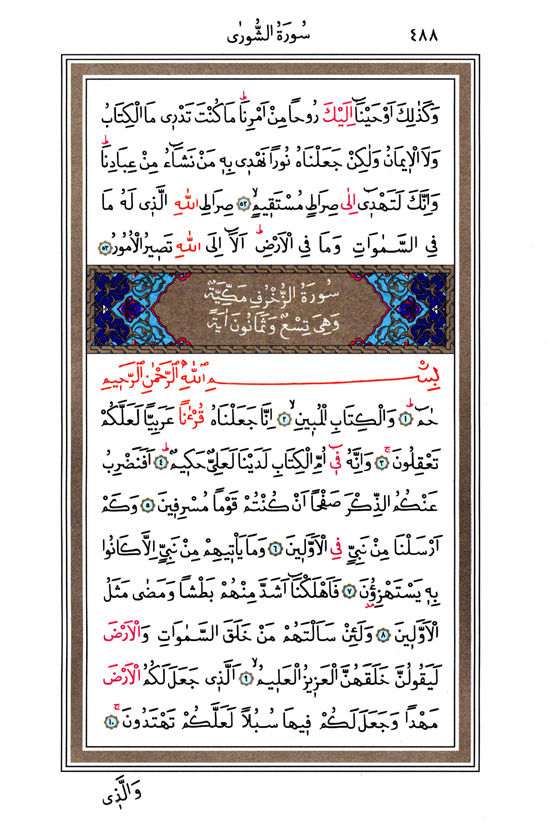 ٤٨٨ سُورَةُ الشُّورٰى
وَكَذٰلِكَ اَوْحَيْنَٓا اِلَيْكَ رُوحاً مِنْ اَمْرِنَاۜ مَا كُنْتَ تَدْرٖى مَا الْكِتَابُ
وَلَا الْاٖيمَانُ وَلٰكِنْ جَعَلْنَاهُ نُوراً نَهْدٖى بِهٖ مَنْ نَشَٓاءُ مِنْ عِبَادِنَاۜ
وَاِنَّكَ لَتَهْدٖٓى اِلٰى صِرَاطٍ مُسْتَقٖيمٍۙ ﴿٥٢﴾ صِرَاطِ اللّٰهِ الَّذٖى لَهُ مَا
فِى السَّمٰوَاتِ وَمَا فِى الْاَرْضِۜ اَلَٓا اِلَى اللّٰهِ تَصٖيرُ الْاُمُورُ ﴿٥٣﴾
سُورَةُ الزُّخْرُفِ مَكِّيَّةٌ
وَهِىَ تِسْعٌ وَثَمَانُونَ اٰيَةً
بِسْــــــــمِ اللّٰهِ الرَّحْمٰنِ الرَّحٖيمِ
حٰمٓۜ ﴿١﴾ وَالْكِتَابِ الْمُبٖينِۙ ﴿٢﴾ اِنَّا جَعَلْنَاهُ قُرْءٰناً عَرَبِيًّا لَعَلَّكُمْ
تَعْقِلُونَۚ ﴿٣﴾ وَاِنَّهُ فٖٓى اُمِّ الْكِتَابِ لَدَيْنَا لَعَلِىٌّ حَكٖيمٌۜ ﴿٤﴾ اَفَنَضْرِبُ
عَنْكُمُ الذِّكْرَ صَفْحاً اَنْ كُنْتُمْ قَوْماً مُسْرِفٖينَ ﴿٥﴾ وَكَمْ
اَرْسَلْنَا مِنْ نَبِىٍّ فِى الْاَوَّلٖينَ ﴿٦﴾ وَمَا يَاْتٖيهِمْ مِنْ نَبِىٍّ اِلَّا كَانُوا
بِهٖ يَسْتَهْزِؤُ۫نَ ﴿٧﴾ فَاَهْلَكْنَٓا اَشَدَّ مِنْهُمْ بَطْشاً وَمَضٰى مَثَلُ
الْاَوَّلٖينَ ﴿٨﴾ وَلَئِنْ سَاَلْتَهُمْ مَنْ خَلَقَ السَّمٰوَاتِ وَالْاَرْضَ
لَيَقُولُنَّ خَلَقَهُنَّ الْعَزٖيزُ الْعَلٖيمُۙ ﴿٩﴾ اَلَّذٖى جَعَلَ لَكُمُ الْاَرْضَ
مَهْداً وَجَعَلَ لَكُمْ فٖيهَا سُبُلاً لَعَلَّكُمْ تَهْتَدُونَۚ ﴿١٠﴾
وَالَّذٖى